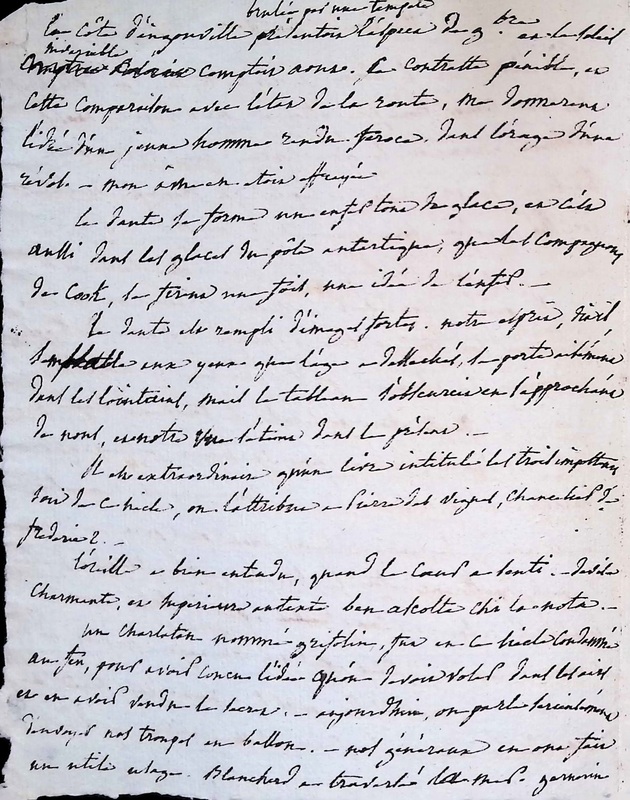 brulée par une tempête
la Côte d'ingouville présentoit l'aspect de 9.bre et le soleil
misérable
comptoit nous. Ce contraste pénible, et
cette comparaison avec l'état de la route, me donnerent
l'idée d'un jeune homme rendu féroce. dans l'orage d'une
révol. – mon âme en etoit effrayée
Le dante se forme un enfer tout de glace, et c'est
aussi dans les glaces du pôle antartique, que les Compagnons
de Cook, se firent une fois, une idée de l'enfer. –
Le dante est rempli d'images fortes. notre esprit, dit-il,
semblable aux yeux que l'âge a dessechés, se porte aisément
dans les lointains, mais le tableau s'obscurcit en s'approchant
de nous, et notre vue s'éteint dans le présent. –
Il est extraordinaire qu'un livre intitulé les trois imposteurs
soit de ce siecle, on l'attribue a Pierre des vignes, Chancelier de
frederic 2. –
L'oreille a bien entendu, quand le Cœur a senti. –
Charmante, et superieure ben ascolta chi la nota. –
Un Charlatan nommé grifolin, fut en ce siecle Condamné
au feu, pour avoir conçu l'idée qu'on pouvoit voler dans les airs
et en avoir vendu le secret. – aujourdhui, on parle serieusement
d'envoyer nos troupes en ballon. – nos généraux en ont fait
un utile usage. Blanchard a traversé la mer. garnerin